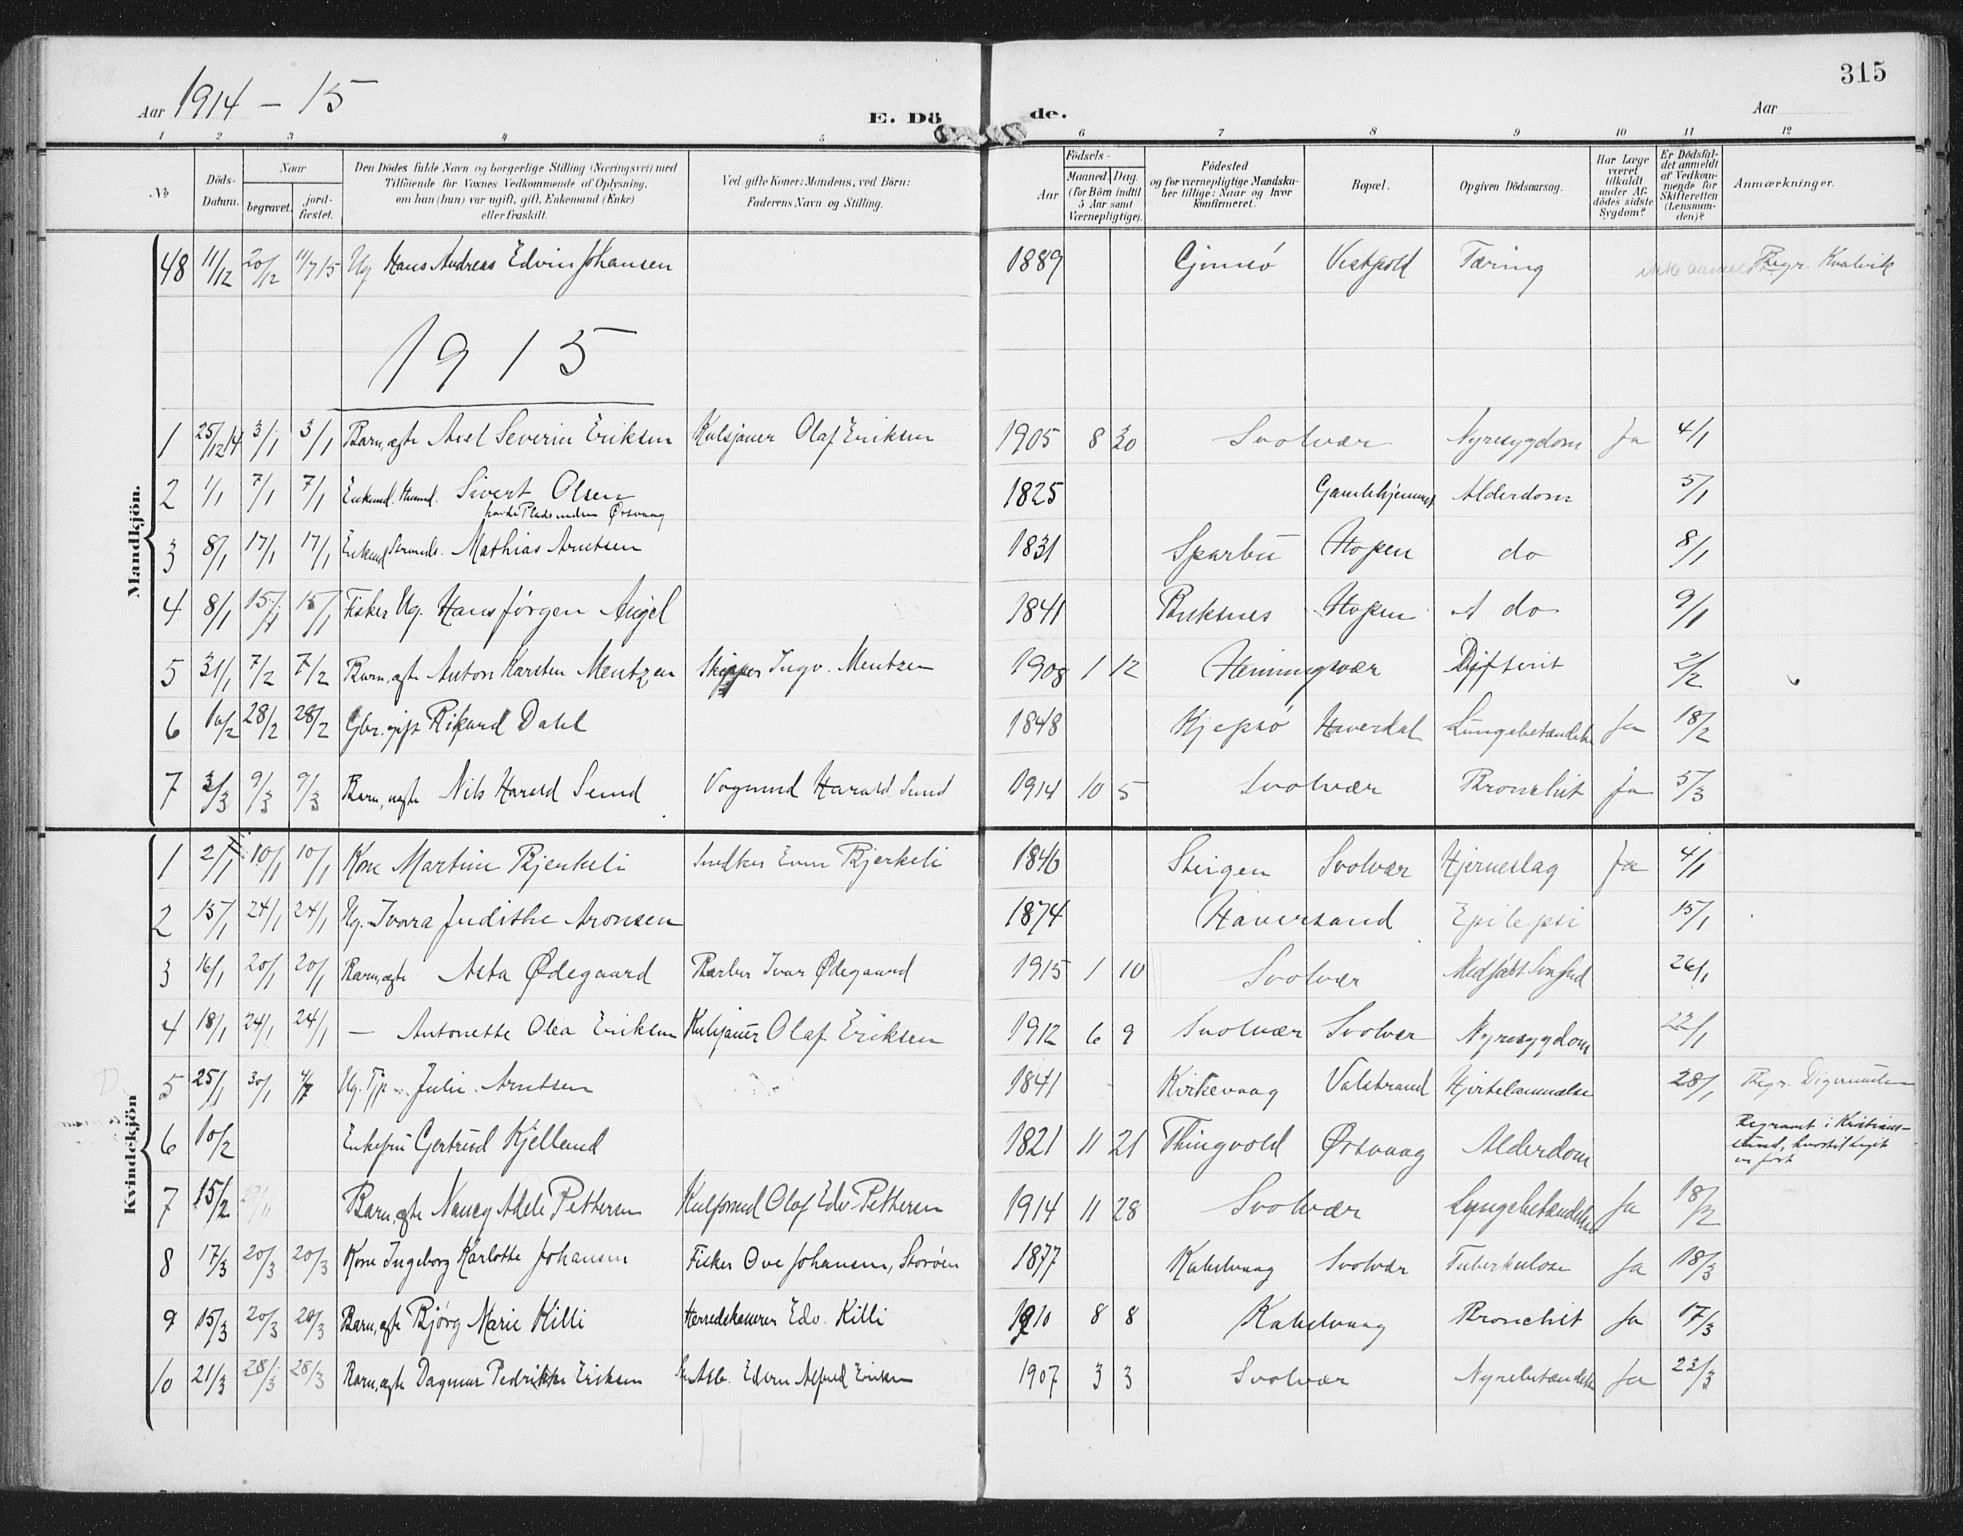 315
Aar 1914 - 15
E. Dö de.
Aar
1 2 3 4 5 6 7 8 9 10 11 12
No
Döds-Datum.
Naar
begravet.
jord-fæstet.
Den Dödes fulde Navn og borgerlige Stilling (Næringsvei) med
Tilföiende for Voxnes Vedkommende af Oplysning,
om han (hun) var ugift, gift, Enkemand (Enke)
eller fraskilt.
Ved gifte Koner: Mandens, ved Börn:
Faderens Navn og Stilling.
Födsels-
Aar
Maaned. Dag.
(for Börn indtil
5 Aar samt
Værnepligtige).
Födested
og for værnepligtige Mandska-
ber tillige: Naar og hvor
Konfirmeret.
Bopæl.
Opgiven Dödsaarsag.
Har Læge
været
tilkaldt
under Af-
dödes sidste
Sygdom?
Er Dödsfal-
det anmeldt
af Vedkom-
mende for
Skifteretten
(Lensman-
den)?
Anmærkninger.
Mandkjön.
48 11/12 20/12 11/7 15 Ug Hans Andreas Edvin Johansen 1889 Gimsö Vestpold Tæring ikke Begr. Kvalvik
1915
1 25/12 14 3/1 3/1 Barn, ægte Axel Severin Eriksen Kulsjauer Olaf Eriksen 1905 8 30 Svolvær Nyresygdom Ja 4/1
2 1/1 7/1 7/1 Enkemd. Husmd. Sivert Olsen 1825 Gamlehjemmet Alderdom 5/1
paa Pladsen Ørsvaag
3 8/1 17/1 17/1 Enkemd Mathias Arntsen 1831 Sparbu Hopen do 8/1
4 8/1 15/1 15/1 Fisker Ug. Hans Jørgen Angel 1841 Buksnes Hopen A do 9/1
5 31/1 7/2 7/2 Barn, ægte Anton Karsten Mentzen Skipper Ingv. Mentzen 1908 1 12 Henningsvær Difterit 2/2
6 16/2 28/2 28/2 Gbr. gift Rikard Dahl 1848 Kjepsö Haverdal Lungebetændelse Ja 18/2
7 3/3 9/3 9/3 Barn, ægte Nils Harald Sund Vognmd Harald Sund 1914 10 5 Svolvær Bronchit ja 5/3
Kvindekjön
1 2/1 10/1 10/1 Kone Martine Bjerkeli Snedker Even Bjerkeli 1846 Steigen Svolvær Hjerneslag Ja 4/1
2 15/1 24/1 24/1 Ug. Ivara Judithe Aronsen 1874 Haversand Epilepsi 15/1
3 16/1 20/1 20/1 Barn, ægte Asta Ødegaard Barber Ivar Ødegaard 1915 1 10 Svolvær Medfødt Svaghed 26/1
4 18/1 24/1 24/1 — Antonette Olea Eriksen Kulsjauer Olaf Eriksen 1912 6 9 Svolvær Svolvær Nyresygdom 22/1
5 25/1 30/1 4/7 Ug. Tjp. Julie Arntsen 1841 Kirkevaag Valstrand Hjertelammelse 28/1 Begr. Digermulen
6 10/2 Enkefru Gertrud Kjelland 1821 11 21 Thingvold Ørsvaag Alderdom Begravet i Kristians-
sund, hvortil Liget
er ført
7 15/2 Barn, ægte Nancy Adele Pettersen Olaf Edv Pettersen 1914 11 28 Svolvær Lungebetændelse Ja 18/2
8 17/3 20/3 20/3 Kone Ingeborg Karlotte Johansen Fisker Ove Johansen, Storøen 1877 Kabelvaag Svolvær Tuberkulose Ja 18/3
9 15/3 20/3 20/3 Barn, ægte Bjørg Marie Killi Herredskasserer Edv. Killi 1910 8 8 Kabelvaag Bronchit Ja 17/3
10 21/3 28/3 28/3 Barn, ægte Dagmar Pedrikke Eriksen Edvin Alfred Eriksen 1907 3 3 Svolvær Nyrebetændelse Ja 23/3